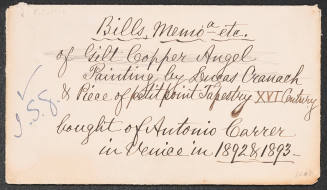 Bills, Memoᵃ etc.
of Gilt Copper Angel
Painting by Lucas Cranach
& Piece of petit point Tapestry XVI Century
bought of Antonio Carrer
in Venice in 1892 & 1893